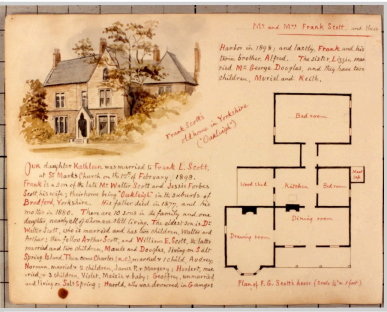 Mr and Mrs Frank Scott, and their
Harbor in 1898; and lastly, Frank and his
twin brother, Alfred. The sister, Lizzie, mar-
ried Mr. George Douglas, and they have two
children, Muriel and Keith.
Frank Scott's
old home in Yorkshire
("Oakleigh")
Our daughter Kathleen was married to Frank L. Scott,
at St Marks Church on the 15th of February, 1898.
Frank is a son of the late Mr Walter Scott and Jessie Forbes
Scott his wife; their home being "Oakleigh" in the suburbs of
Bradford, Yorkshire. His father died in 1877, and his
mother in 1880. There were 10 sons in the family, and one
daughter, nearly all of whom are still living. The oldest son is Dr
Walter Scott, who is married and has two children, Walter and
Arthur; then follow Arthur Scott, and William E. Scott, the latter
married and two children, Maude and Douglas, living on Salt
Spring Island. Then come Charles, married & 1 child, Audrey;
Norman, married & 2 children, James P. & Margery; Herbert, mar-
ried, & 3 children, Violet, Maisie & baby; Geoffrey, unmarried
and living on Salt Spring; Harold, who was drowned in Ganges
Bed room
Wood shed
Kitchen
Bed room
Dining room
Drawing room
Plan of F. G. Scott's house